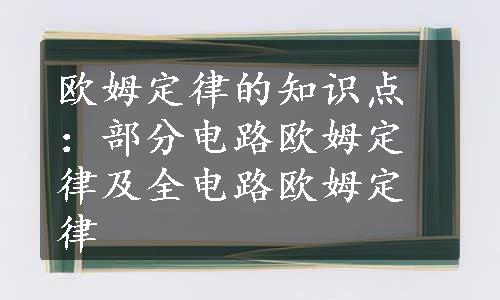 欧姆定律的知识点
：部分电路欧姆定
律及全电路欧姆定
律